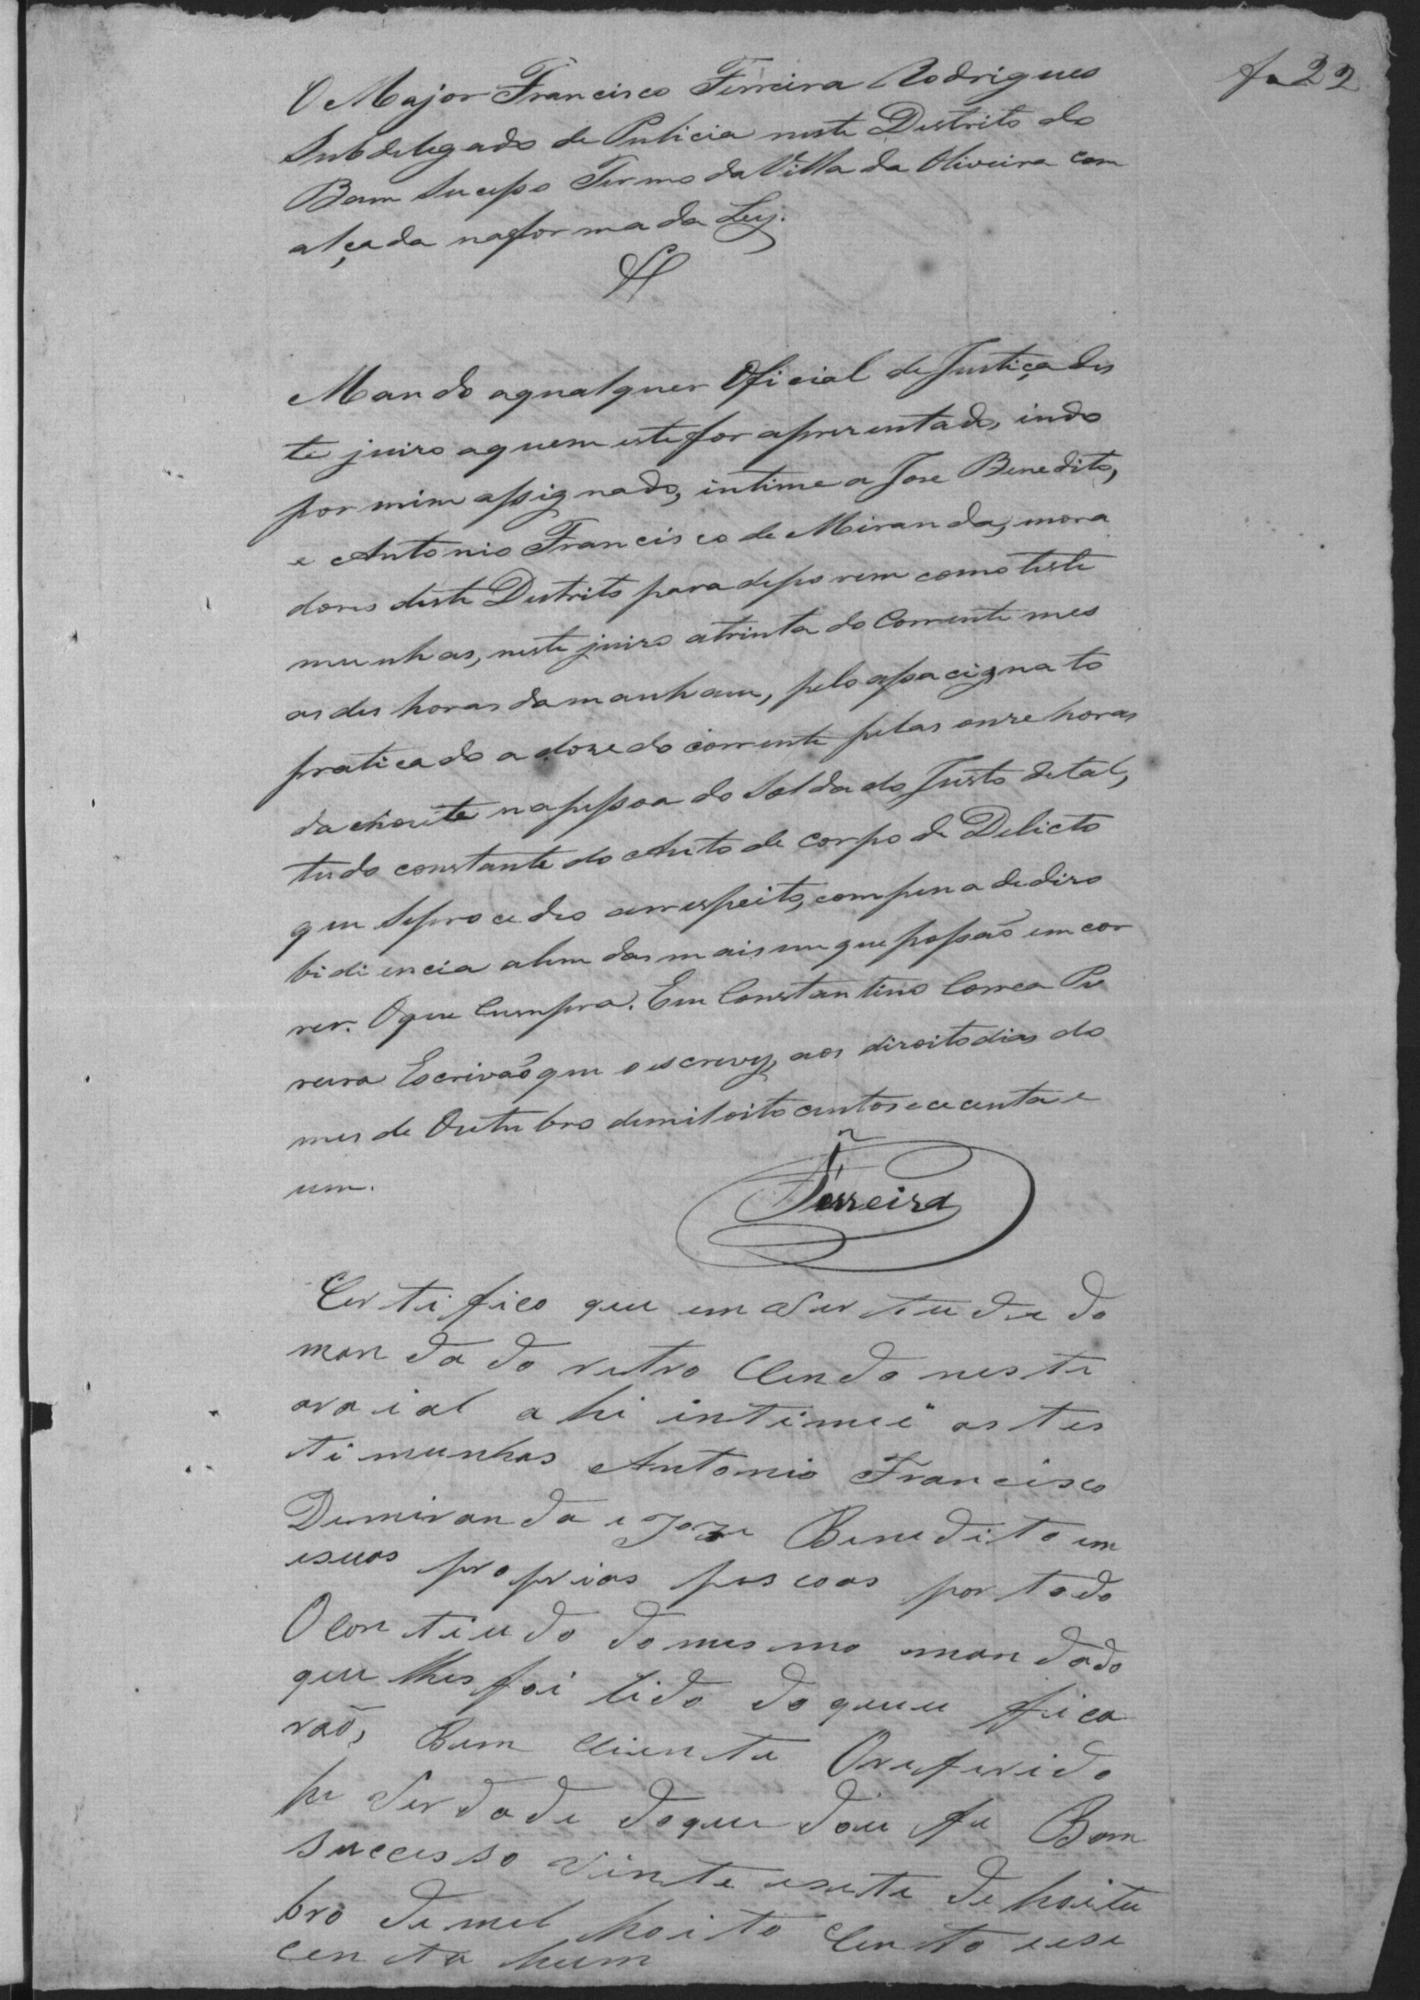 f. 22
O Major Francisco Ferreira Rodrigues
Subdelegado de Pulicia neste Destrito do
Bom Sucesso Termo da Villa da Oliveira com
alçada na forma da Ley.
Mando aqualquer Oficial de Justiça des
te juizo aquem este for aprezentado, indo
por mim assignado, intime a Jose Benedito,
e Antonio Francisco de Miranda, mora
dores deste Destrito para deporem como teste
munhas, neste juizo atrinta do Corrente mes
as des horas da manham, pelo assacignato
praticado a doze do corrente pelas onze horas
da noite na pessoa do Soldado Justo de tal,
tudo constante do Auto de Corpo de Delicto
que seprocedeo arrespeito, com pena de dizo
bidiencia alem das mais em que possão emcor
rer. O que Cumpra. Eu Constantino Correa Pe
reira Escrivão que o escrevy, aos dizoito dias do
mes de Outubro de mil oito centos e cecenta e
um.
Ferreira
Certifico que em Vertude do
mandado retro Cendo neste
araial ahi intimei as tes
timunhas Antonio Francisco
Demiranda e Joze Benedito em
esuas proprias pescoas por todo
O Contiudo do mesmo mandado
que lhes foi lido do queu fica
rão, Bem Ciente O referido
he Verdade do que dou fe Bom
successo Vinte esete de hoitu
bro de mil hoito Cento eese
centa hum